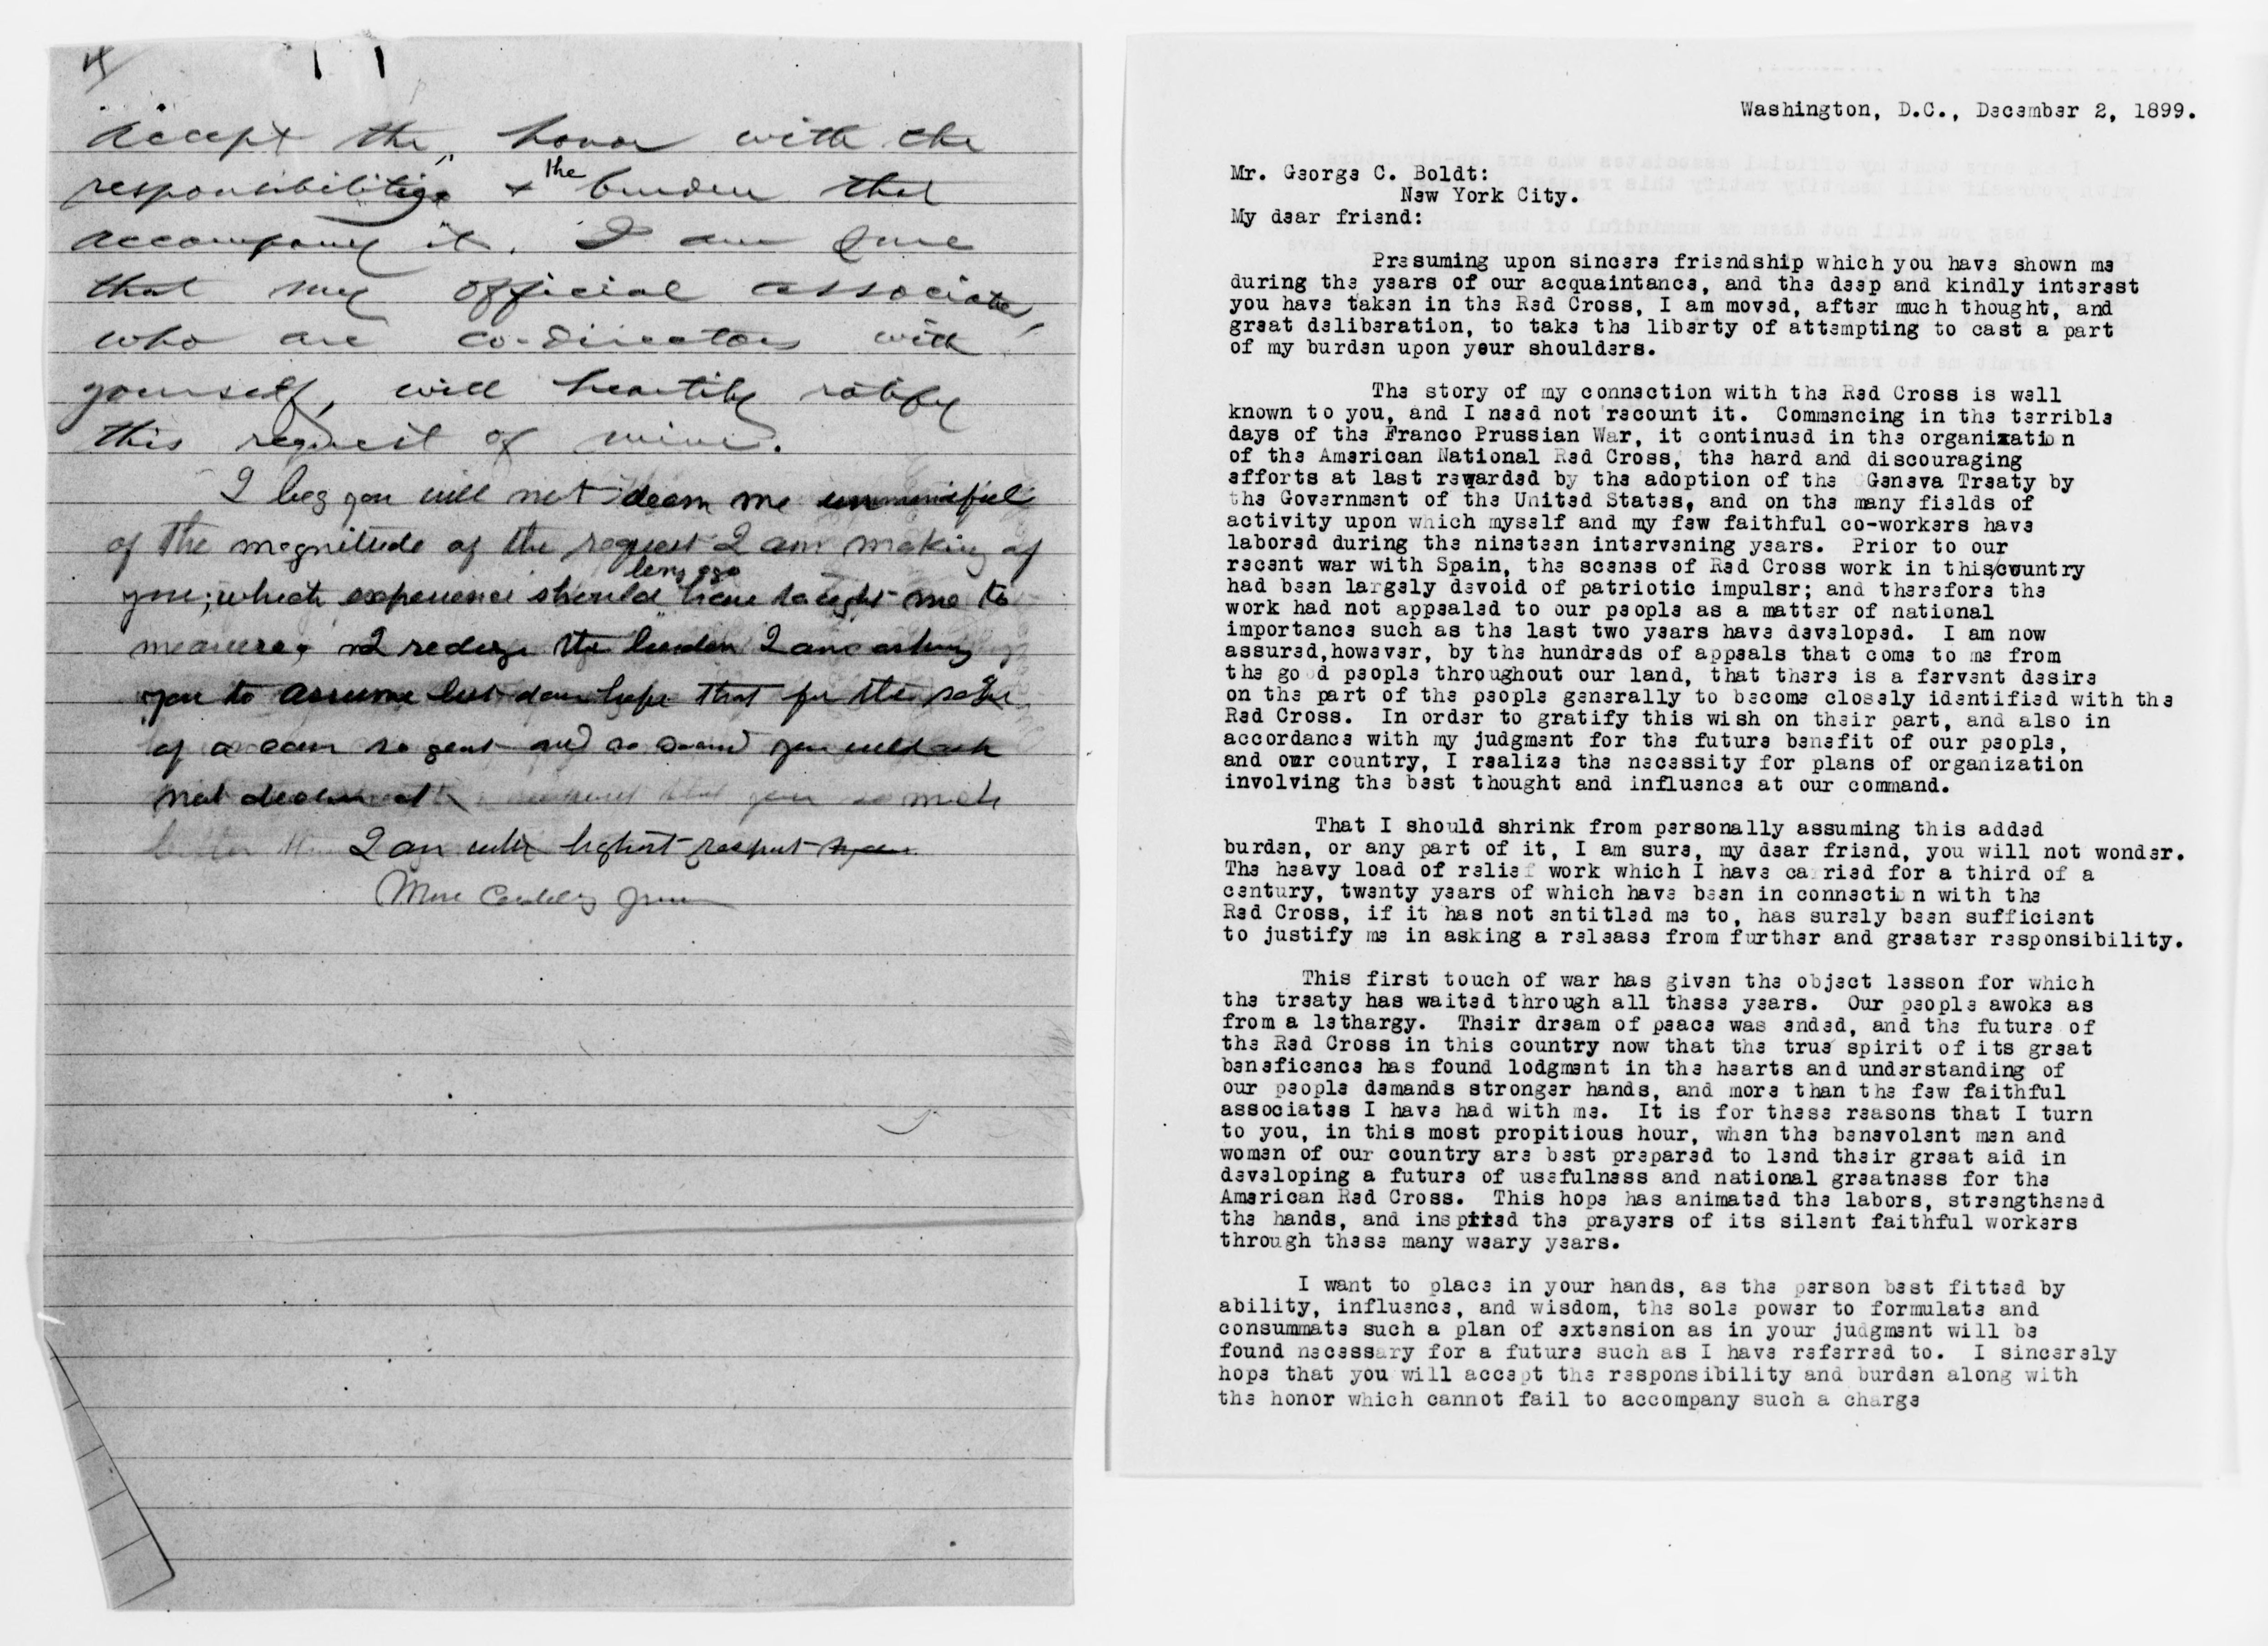 4
accept the honor with the
responsibilities & the burden that
accompany it. I am sure
that my official associates,
who are co-directors with
yourself, will heartily ratify
this request of mine.
I beg you will not deem me unmindful
of the magnitude of the request I am making of
you; which experience should long ago have taught me to
measure. I realize the burden I am asking
you to assume but dare hope that for the sake
of a cause so great and so you will
not
I am with highest respect
Most Cordially yours
Washington, D.C., December 2, 1899.
Mr. George C. Boldt:
New York City.
My dear friend:
Presuming upon sincere friendship which you have shown me
during the years of our acquaintance, and the deep and kindly interest
you have taken in the Red Cross, I am moved, after much thought, and
great deliberation, to take the liberty of attempting to cast a part
of my burden upon your shoulders.
The story of my connection with the Red Cross is well
known to you, and I need not recount it. Commencing in the terrible
days of the Franco Prussian War, it continued in the organization
of the American National Red Cross, the hard and discouraging
efforts at last rewarded by the adoption of the Geneva Treaty by
the Government of the United States, and on the many fields of
activity upon which myself and my few faithful co-workers have
labored during the nineteen intervening years. Prior to our
recent war with Spain, the scenes of Red Cross work in this/country
had been largely devoid of patriotic impulsr; and therefore the
work had not appealed to our people as a matter of national
importance such as the last two years have developed. I am now
assured,however, by the hundreds of appeals that come to me from
the good people throughout our land, that there is a fervent desire
on the part of the people generally to become closely identified with the
Red Cross. In order to gratify this wish on their part, and also in
accordance with my judgment for the future benefit of our people,
and our country, I realize the necessity for plans of organization
involving the best thought and influence at our command.
That I should shrink from personally assuming this added
burden, or any part of it, I am sure, my dear friend, you will not wonder.
The heavy load of relief work which I have carried for a third of a
century, twenty years of which have been in connection with the
Red Cross, if it has not entitled me to, has surely been sufficient
to justify me in asking a release from further and greater responsibility.
This first touch of war has given the object lesson for which
the treaty has waited through all these years. Our people awoke as
from a lethargy. Their dream of peace was ended, and the future of
the Red Cross in this country now that the true spirit of its great
beneficence has found lodgment in the hearts and understanding of
our people demands stronger hands, and more than the few faithful
associates I have had with me. It is for these reasons that I turn
to you, in this most propitious hour, when the benevolent men and
women of our country are best prepared to lend their great aid in
developing a future of usefulness and national greatness for the
American Red Cross. This hope has animated the labors, strengthened
the hands, and inspired the prayers of its silent faithful workers
through these many weary years.
I want to place in your hands, as the person best fitted by
ability, influence, and wisdom, the sole power to formulate and
consummate such a plan of extension as in your judgment will be
found necessary for a future such as I have referred to. I sincerely
hope that you will accept the responsibility and burden along with
the honor which cannot fail to accompany such a charge